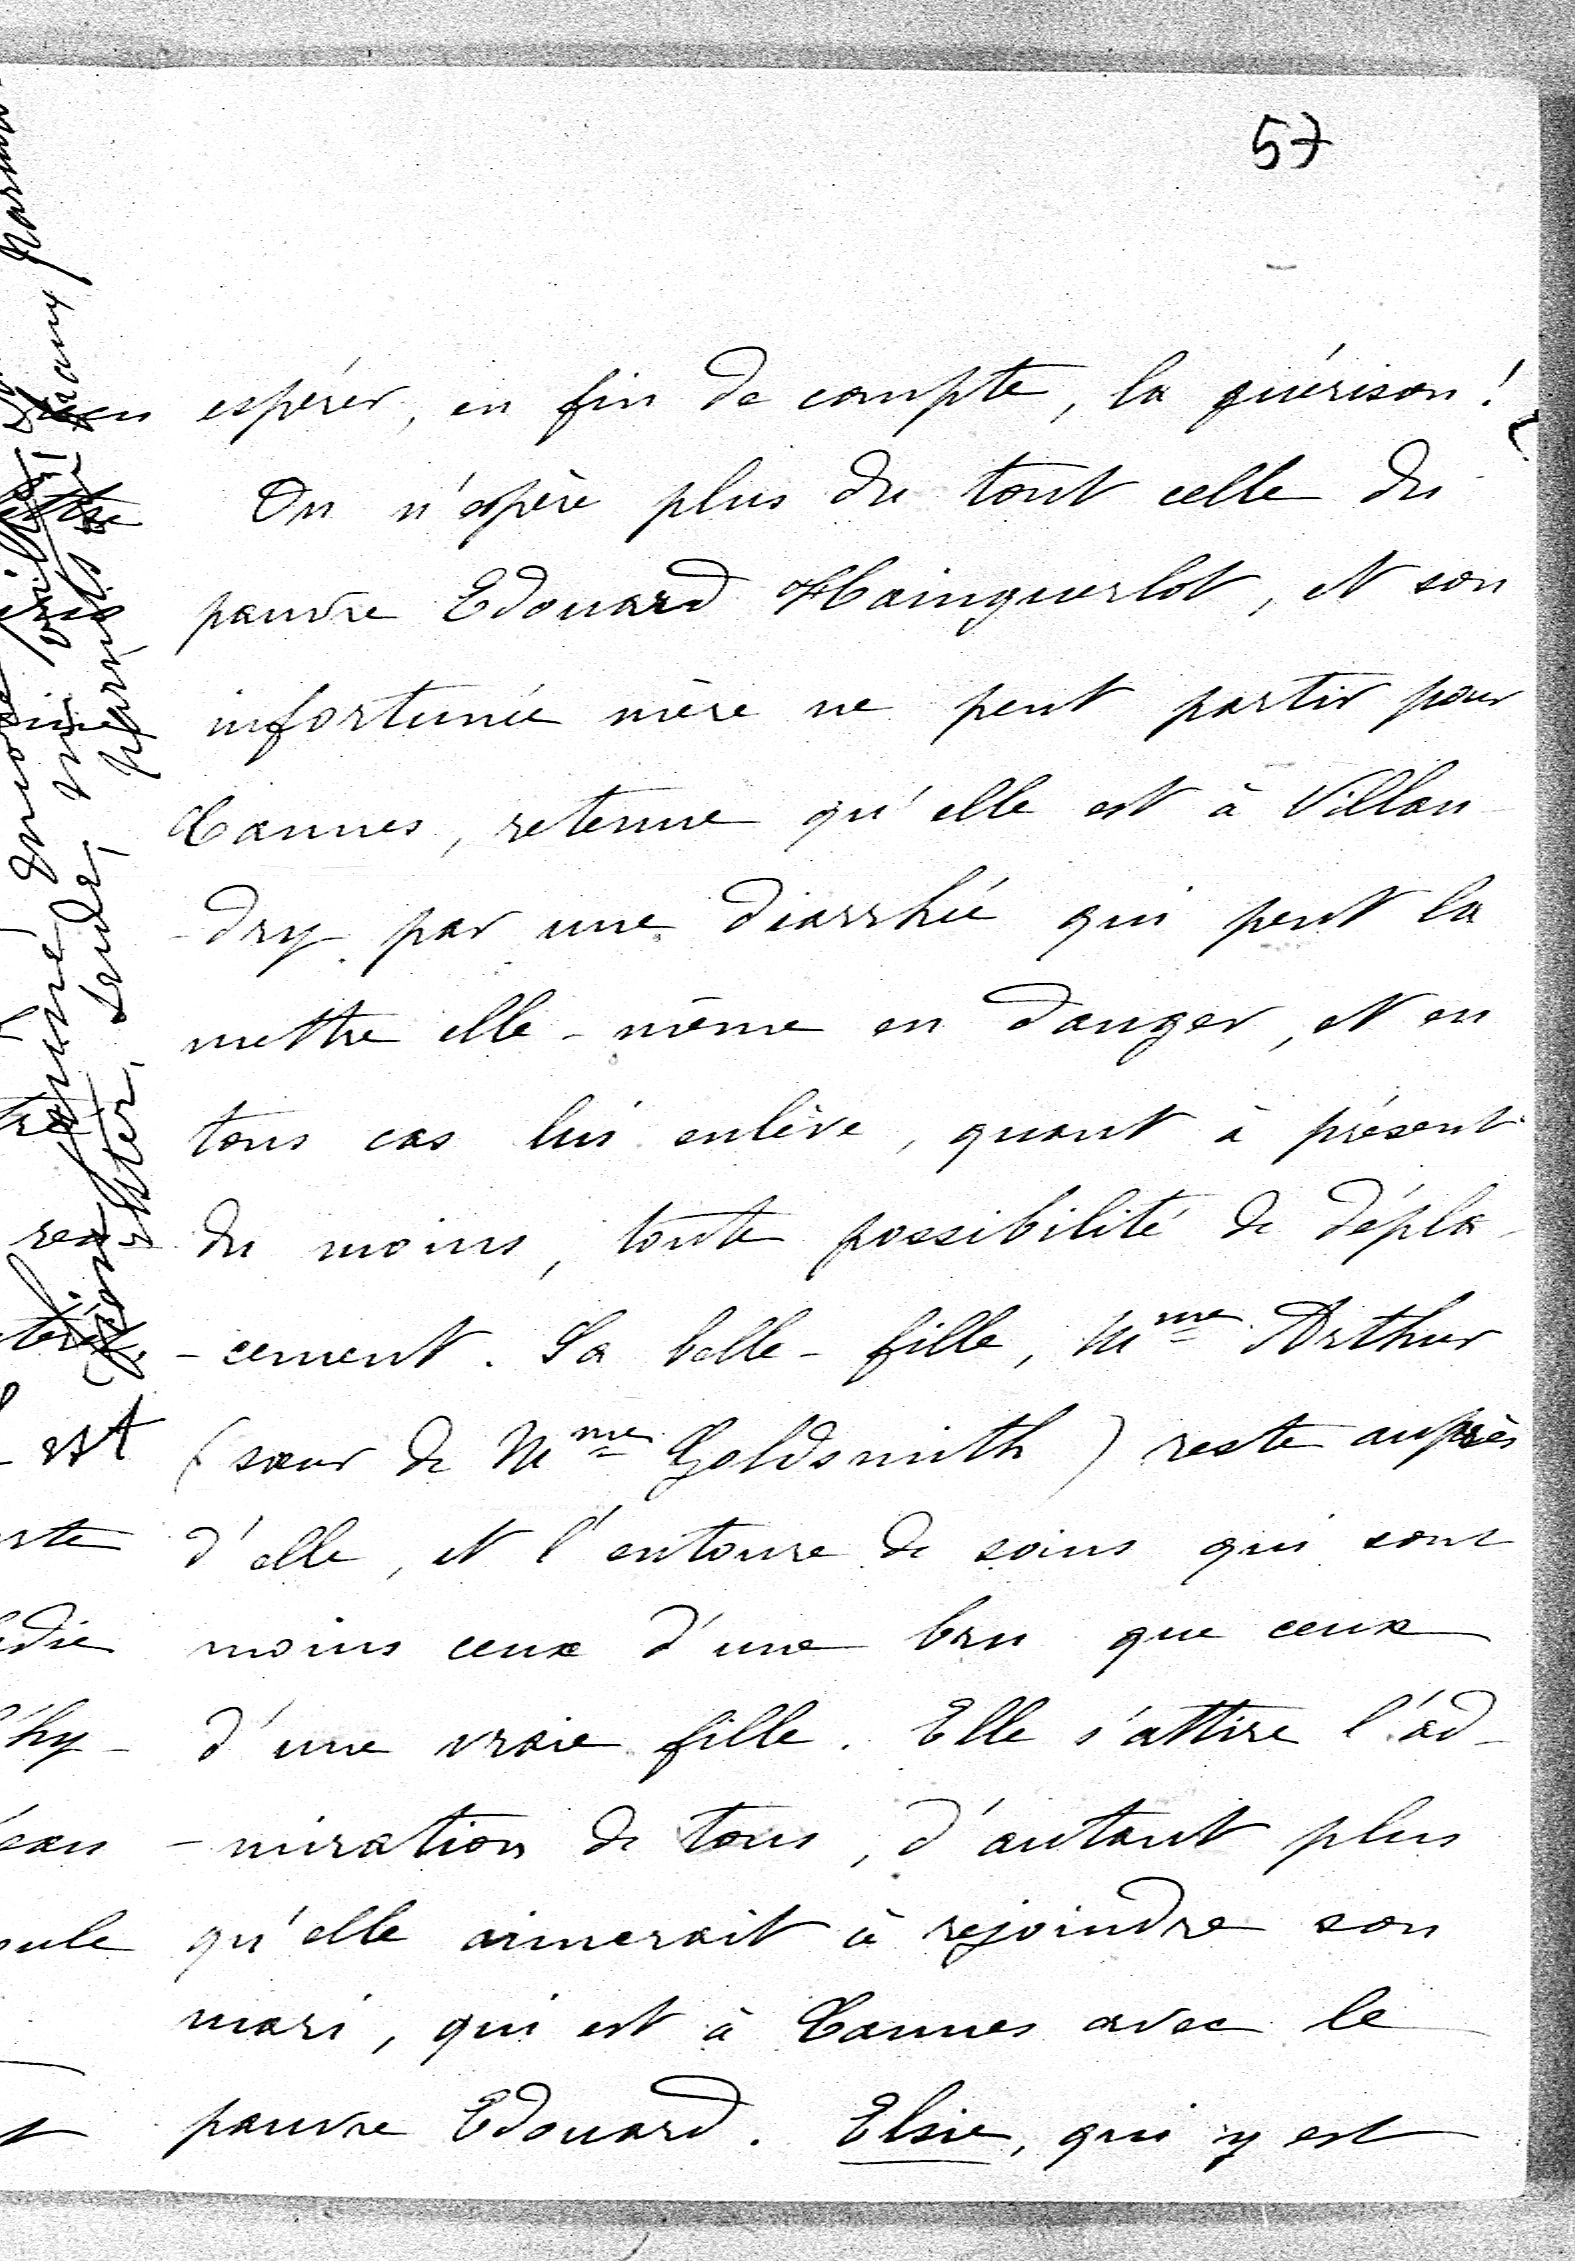 57
espérer, en fin de compte, la guérison !
On n'espère plus du tout celle du
pauvre Edouard Hainguerlot, et son
infortunée mère ne peut partir pour
Cannes, retenue qu'elle est à Villan-
-dry par une diarrhée qui peut la
mettre elle-même en danger, et en
tous cas lui enlève, quant à présent
du moins, toute possibilité de dépla-
-cement. Sa belle-fille, Mme Arthur
(sœur de Mme Goldsmith) reste auprès
d'elle, et l'entoure de soins qui sont
moins ceux d'une bru que ceux
d'une vraie fille. Elle s'attire l'ad-
-miration de tous, d'autant plus
qu'elle aimerait à rejoindre son
mari, qui est à Cannes avec le
pauvre Edouard. Elsie, qui y est
est